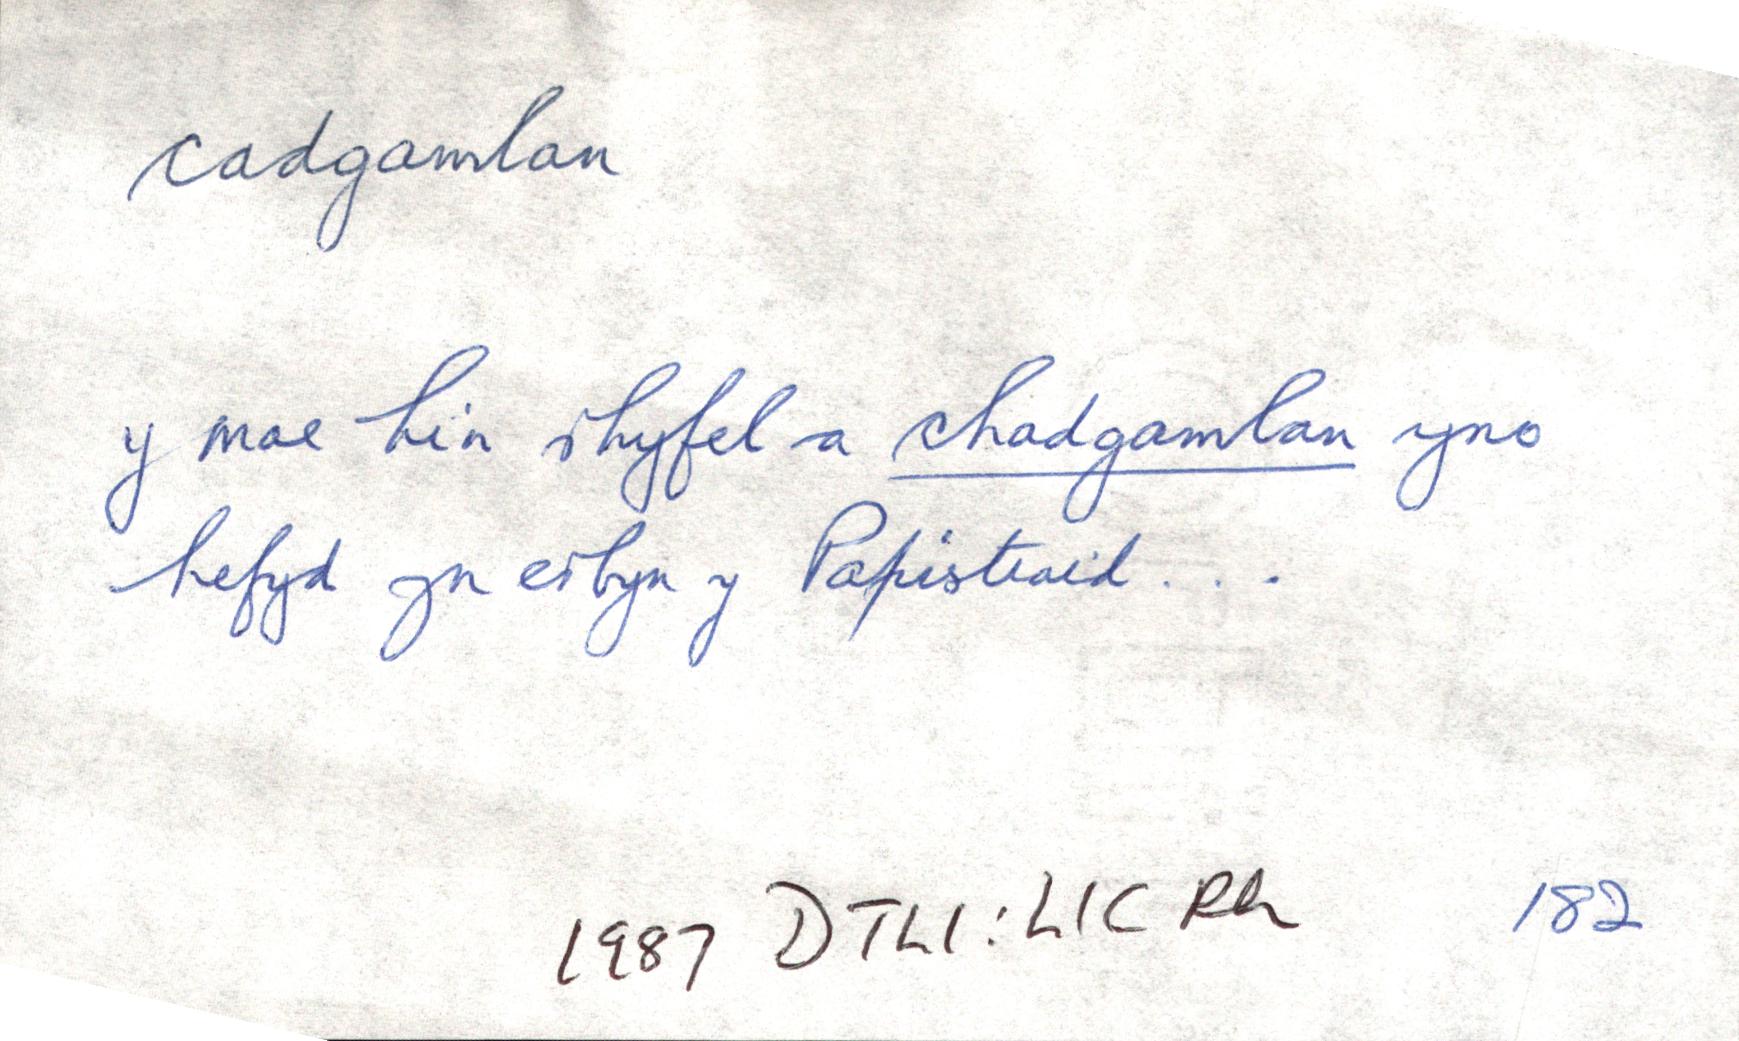 cadgamlan
y mae hin rhyfel a chadgamlan yno
hefyd yn erbyn y Papistiaid . . .
1987 DTLl: LlC Rh 182